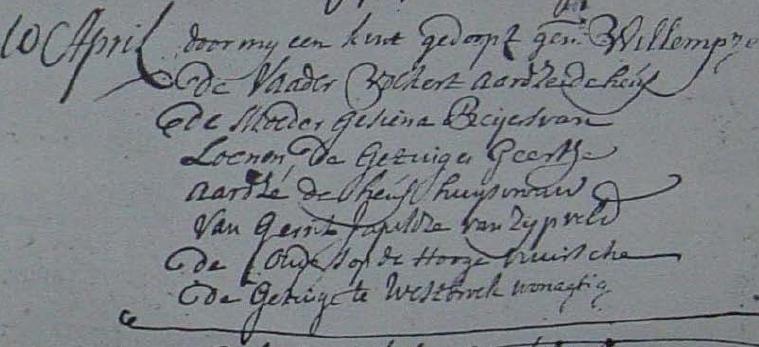 10 April door my een kint gedoopt gen: Willempze
De Vaader Rockert Aartze de heus
de Moeder Gesiena Beijers van
Loenen De Getuige Geertze
Aartze de heus huijsvrouw
van Gerrit van Zypveld
de Ouders op de Hooge
de Getuige te Westbroek wonagtig